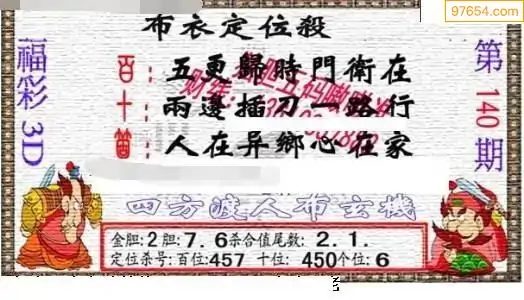 97654.com
布衣定位殺
福彩3D
第140期
百：五更歸時門衛在
十：兩邊插刀一路行
個：人在异鄉心在家
四方渡人布玄機
金胆:2胆:7.6杀合值尾数:2.1.
定位杀号:百位:457 十位:450个位:6